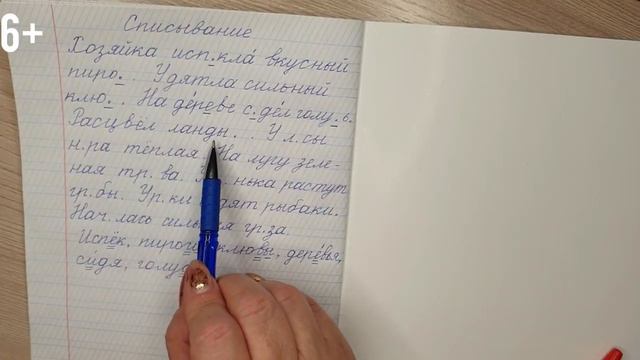 6+
Списывание
Хозяйка исп.кла́ вкусный
пиро. . У дятла сильный
клю. . На де́реве с.де́л голу.б.
Расцвёл ланды. . У л.сы
н.ра тёплая. На лугу зеле-
ная тр.ва. растут
гр.бы. Ур.ки рыбаки.
Нач.лась гр.за
Испёк, дере́вья,
си́дя,